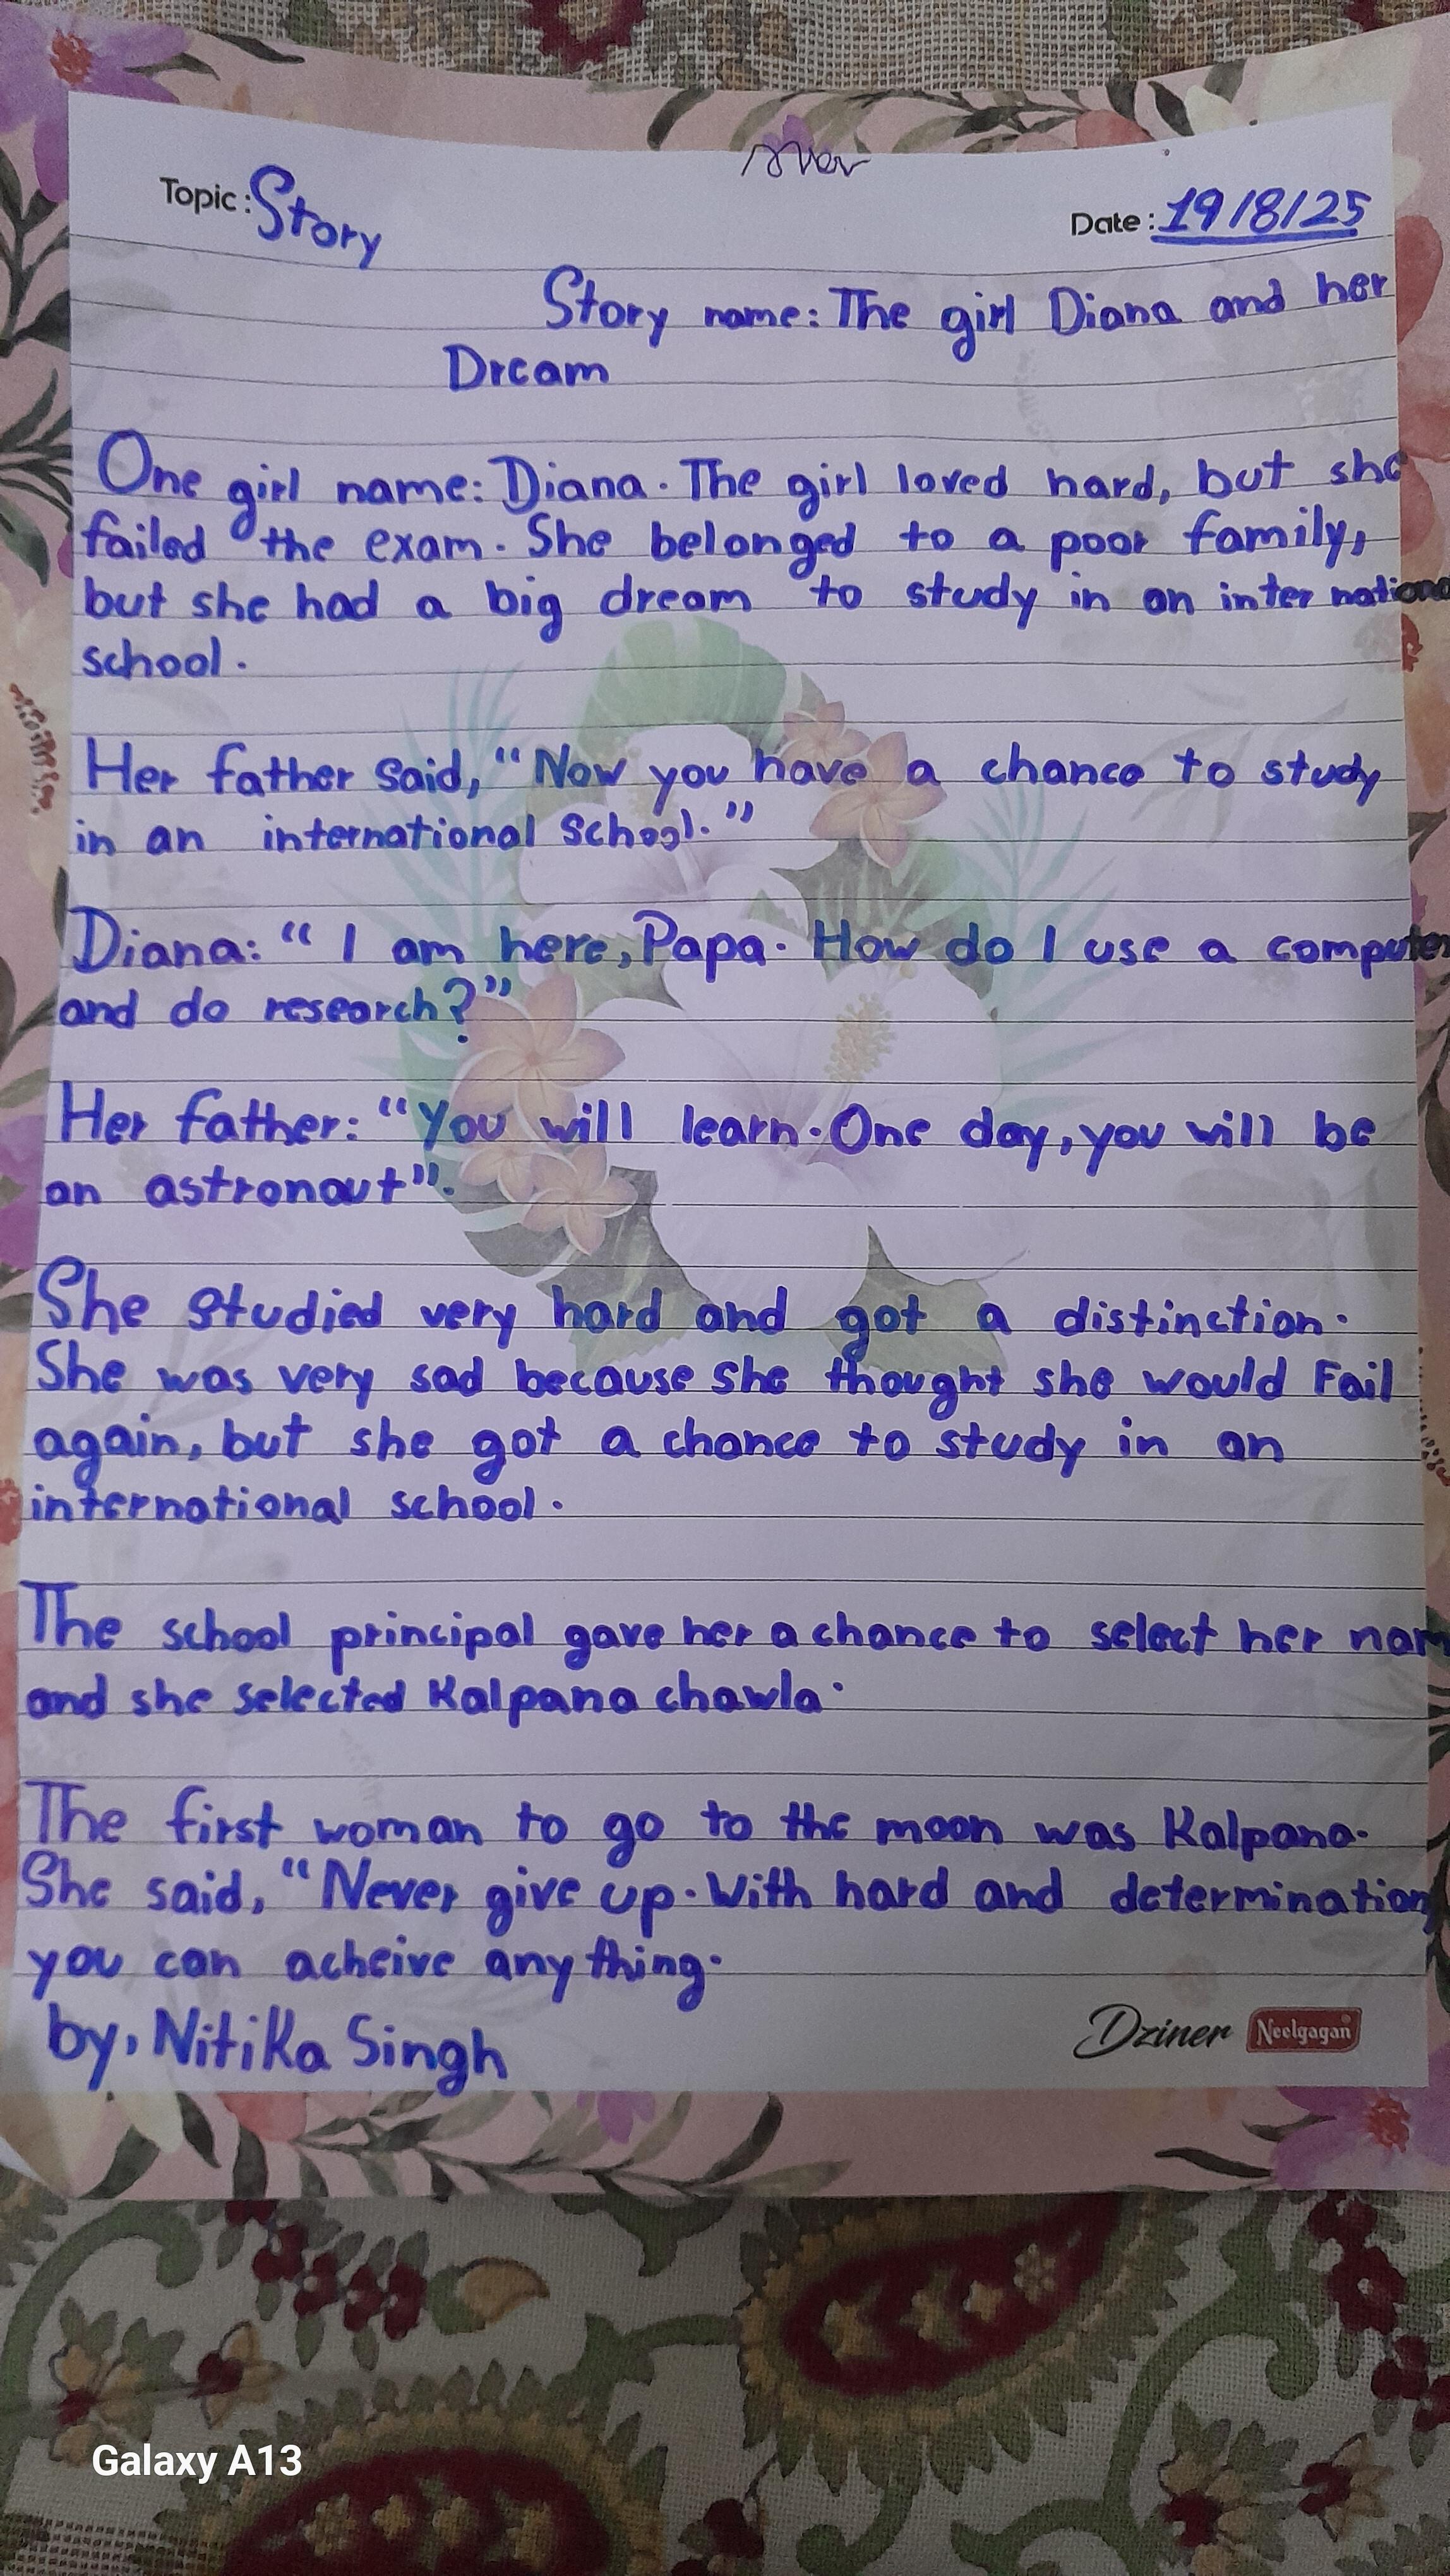 Topic: Story
Date: 19/8/25
Story name: The girl Diana and her
Dream
One girl name: Diana. The girl loved hard, but she
failed the exam. She belonged to a poor family,
but she had a big dream to study in an inter nationa
school.
Her father said, “Now you have a chance to study
in an international school.”
Diana: “I am here, Papa. How do I use a computer
and do research?”
Her father: “You will learn. One day, you will be
an astronaut”.
She studied very hard and got a distinction.
She was very sad because she thought she would Fail
again, but she got a chance to study in an
international school.
The school principal gave her a chance to select her nam
and she selected Kalpana chawla.
The first woman to go to the moon was Kalpana.
She said, “Never give up. With hard and determination
you can acheive any thing.
by, Nitika Singh
Dziner Neelgagan
Galaxy A13